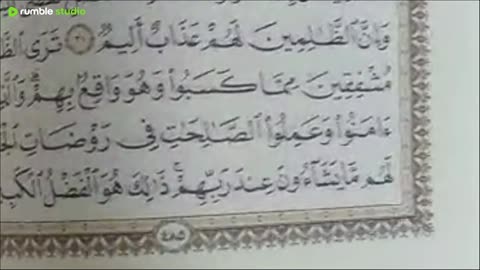 rumble studio
وَإِنَّ ٱلظَّٰلِمِينَ لَهُمْ عَذَابٌ أَلِيمٌ ٢١ تَرَى
مُشْفِقِينَ مِمَّا كَسَبُوا۟ وَهُوَ وَاقِعٌۢ بِهِمْ ۗ
ءَامَنُوا۟ وَعَمِلُوا۟ ٱلصَّٰلِحَٰتِ فِى رَوْضَاتِ
لَهُم مَّا يَشَآءُونَ عِندَ رَبِّهِمْ ۚ ذَٰلِكَ هُوَ ٱلْفَضْلُ
٤٨٥